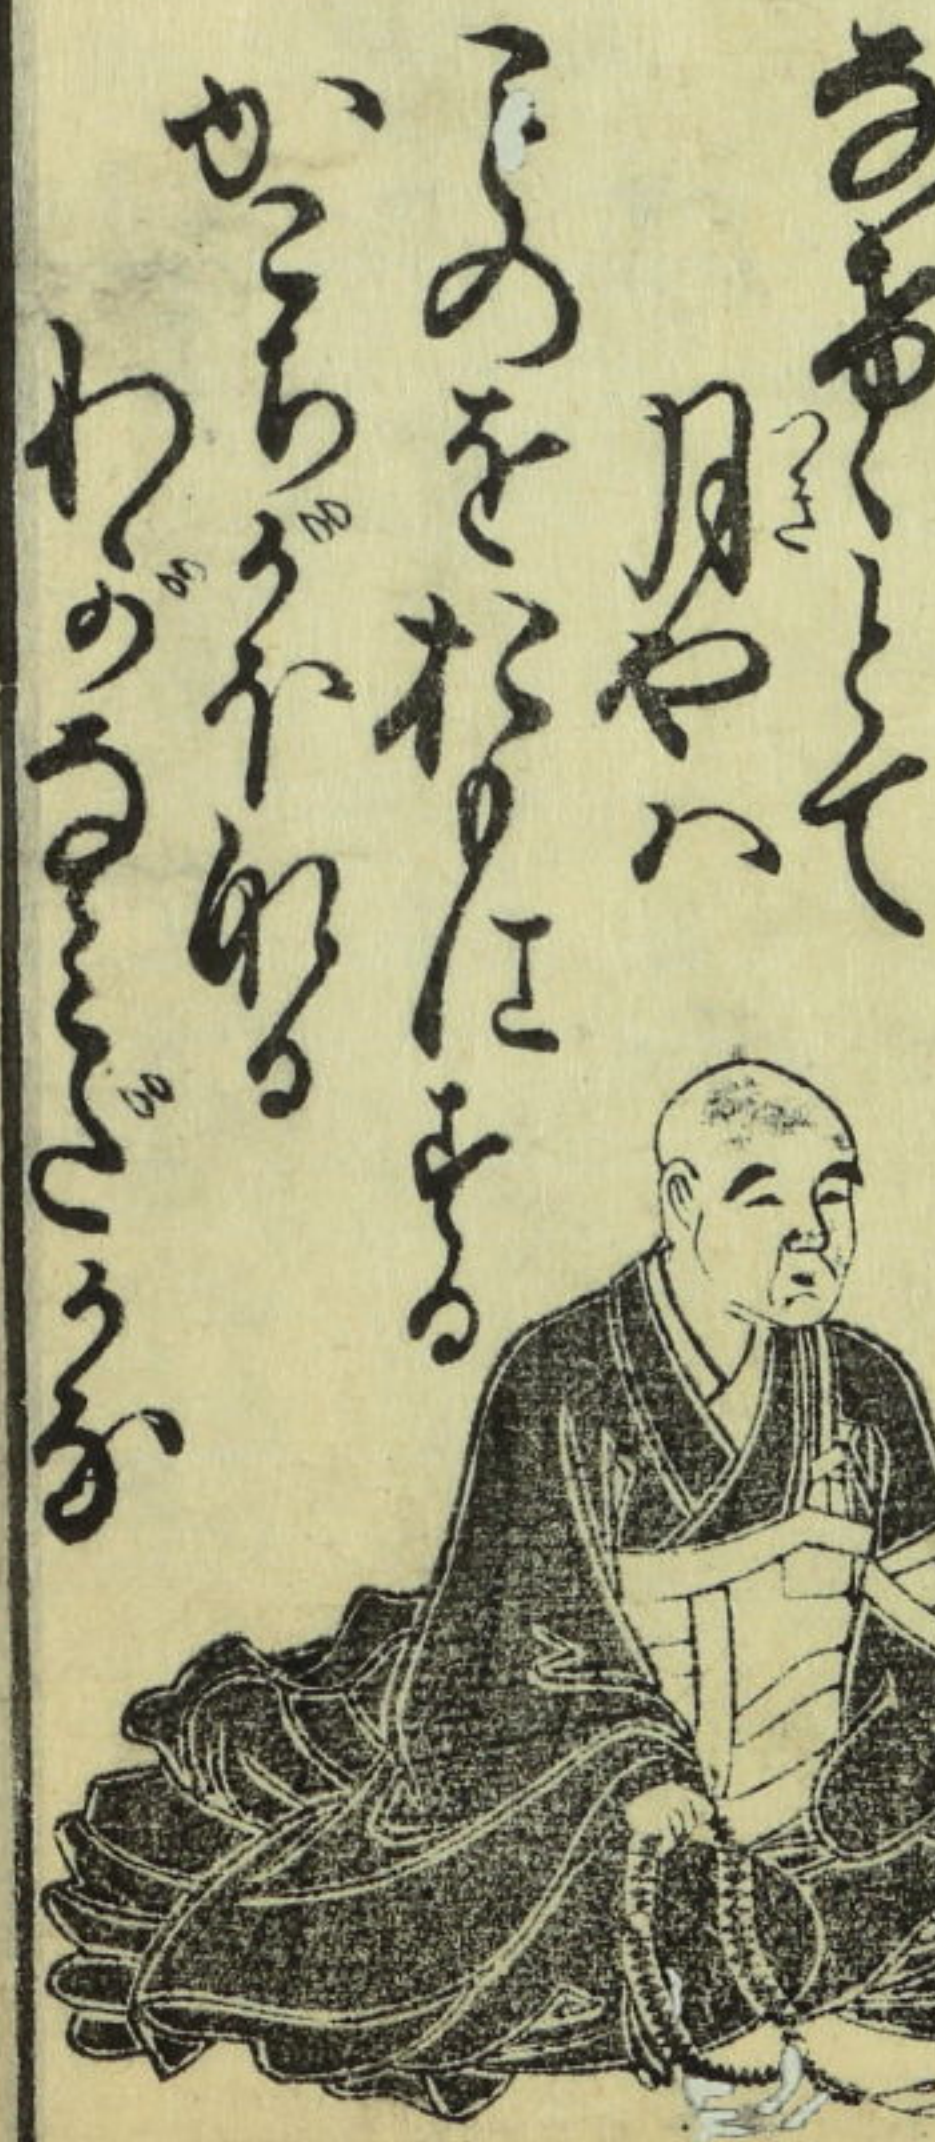 なげくとて
月やハ
ものをおもはする
かこちがほなる
わがなみだかな